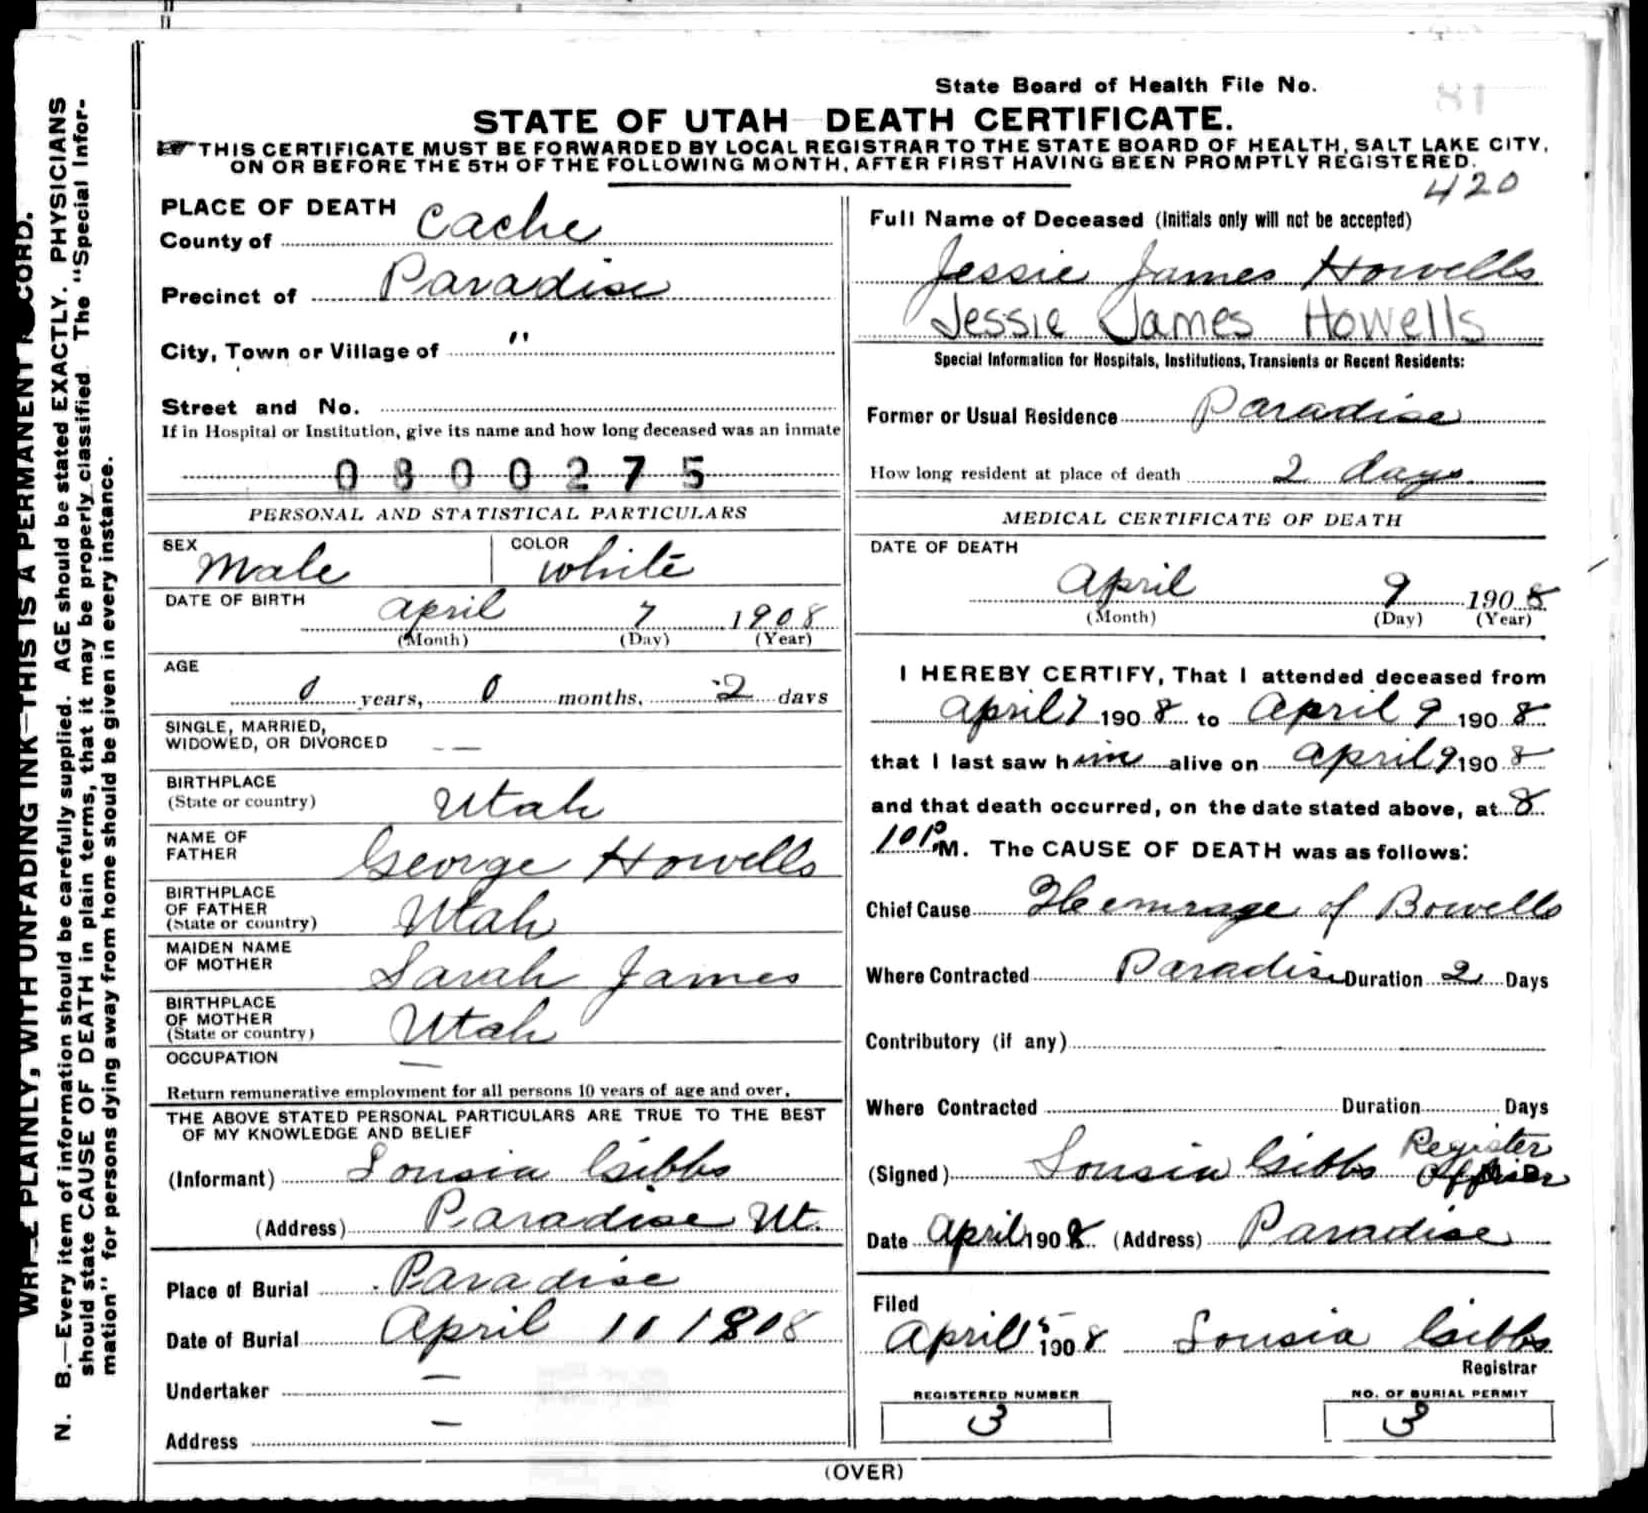 State Board of Health File No.
81
STATE OF UTAH DEATH CERTIFICATE.
THIS CERTIFICATE MUST BE FORWARDED BY LOCAL REGISTRAR TO THE STATE BOARD OF HEALTH, SALT LAKE CITY,
ON OR BEFORE THE 5TH OF THE FOLLOWING MONTH, AFTER FIRST HAVING BEEN PROMPTLY REGISTERED.
420
PLACE OF DEATH
County of Cache
Precinct of Paradise
City, Town or Village of "
Street and No.
If in Hospital or Institution, give its name and how long deceased was an inmate
0800275
PERSONAL AND STATISTICAL PARTICULARS
SEX Male COLOR White
DATE OF BIRTH April 7 1908
(Month) (Day) (Year)
AGE
0 years, 0 months, 2 days
SINGLE, MARRIED,
WIDOWED, OR DIVORCED — —
BIRTHPLACE
(State or country) Utah
NAME OF
FATHER George Howells
BIRTHPLACE
OF FATHER
(State or country) Utah
MAIDEN NAME
OF MOTHER Sarah James
BIRTHPLACE
OF MOTHER
(State or country) Utah
OCCUPATION —
Return remunerative employment for all persons 10 years of age and over.
THE ABOVE STATED PERSONAL PARTICULARS ARE TRUE TO THE BEST
OF MY KNOWLEDGE AND BELIEF
(Informant) Lousia Gibbs
(Address) Paradise Ut.
Place of Burial Paradise
Date of Burial April 11 1908
Undertaker —
Address —
Full Name of Deceased (Initials only will not be accepted)
Jessie James Howells
Jessie James Howells
Special Information for Hospitals, Institutions, Transients or Recent Residents:
Former or Usual Residence Paradise
How long resident at place of death 2 days
MEDICAL CERTIFICATE OF DEATH
DATE OF DEATH
April 9 1908
(Month) (Day) (Year)
I HEREBY CERTIFY, That I attended deceased from
April 7 1908 to April 9 1908
that I last saw him alive on April 9 1908
and that death occurred, on the date stated above, at 8
10 P M. The CAUSE OF DEATH was as follows:
Chief Cause Hemrage of Bowells
Where Contracted Paradise Duration 2 Days
Contributory (if any)
Where Contracted Duration Days
(Signed) Lousia Gibbs Register Officer
Date April 1908 (Address) Paradise
Filed
April 15 1908 Lousia Gibbs
Registrar
REGISTERED NUMBER
3
NO. OF BURIAL PERMIT
3
(OVER)
PLAINLY, WITH UNFADING INK—THIS IS A PERMANENT RECORD.
N. B.—Every item of information should be carefully supplied. AGE should be stated EXACTLY. PHYSICIANS
should state CAUSE OF DEATH in plain terms, that it may be properly classified. The "Special Infor-
mation" for persons dying away from home should be given in every instance.